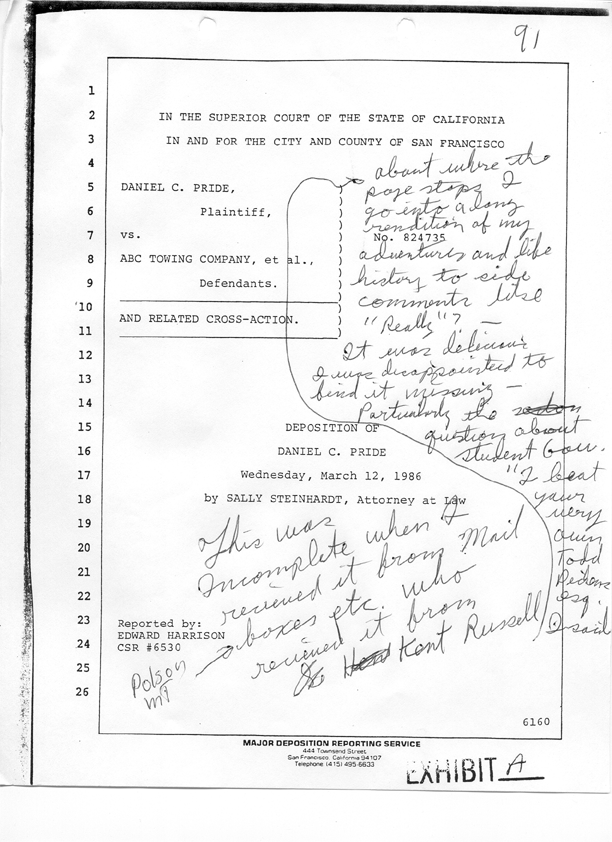 91
1
2 IN THE SUPERIOR COURT OF THE STATE OF CALIFORNIA
3 IN AND FOR THE CITY AND COUNTY OF SAN FRANCISCO
4
5 DANIEL C. PRIDE,
6 Plaintiff,
7 vs. No. 824735
8 ABC TOWING COMPANY, et al.,
9 Defendants.
10
11 AND RELATED CROSS-ACTION.
12
13
14
15 DEPOSITION OF
16 DANIEL C. PRIDE
17 Wednesday, March 12, 1986
18 by SALLY STEINHARDT, Attorney at Law
19
20
21
22
23 Reported by:
EDWARD HARRISON
24 CSR #6530
25
26
about where the
page stops I
go into a long
rendition of my
adventures and life
history to side
comments like
"Really"? —
It was delicious
I was disappointed to
find it missing —
Particularly the
question about
student Gov.
"I beat
your
very
own
Todd
Esq.
I said
This was
Incomplete when I
recieved it from Mail
boxes etc. who
recieved it from
Kent Russell
Polson
MT
6160
MAJOR DEPOSITION REPORTING SERVICE
444 Townsend Street
San Francisco, California 94107
Telephone (415) 495-6633
EXHIBIT A